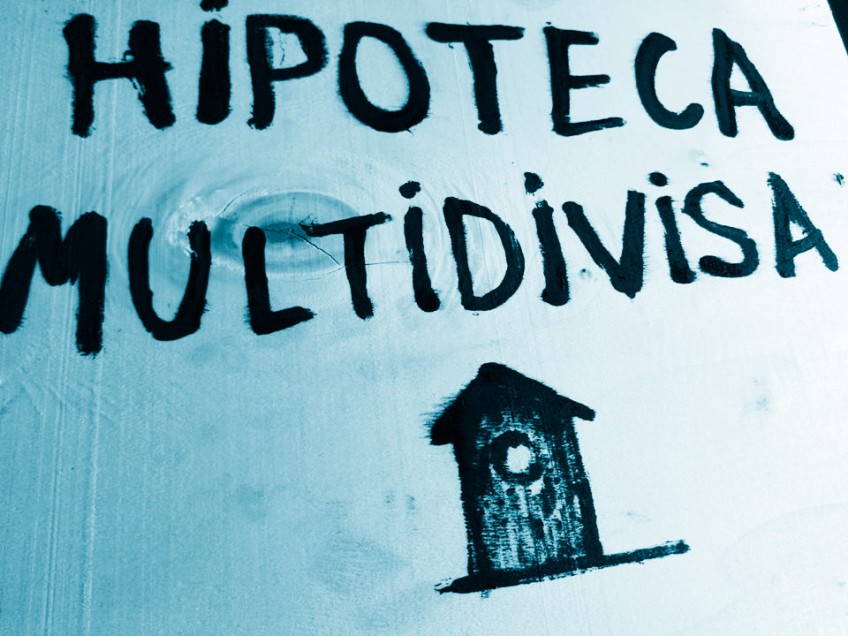 HIPOTECA
MULTIDIVISA